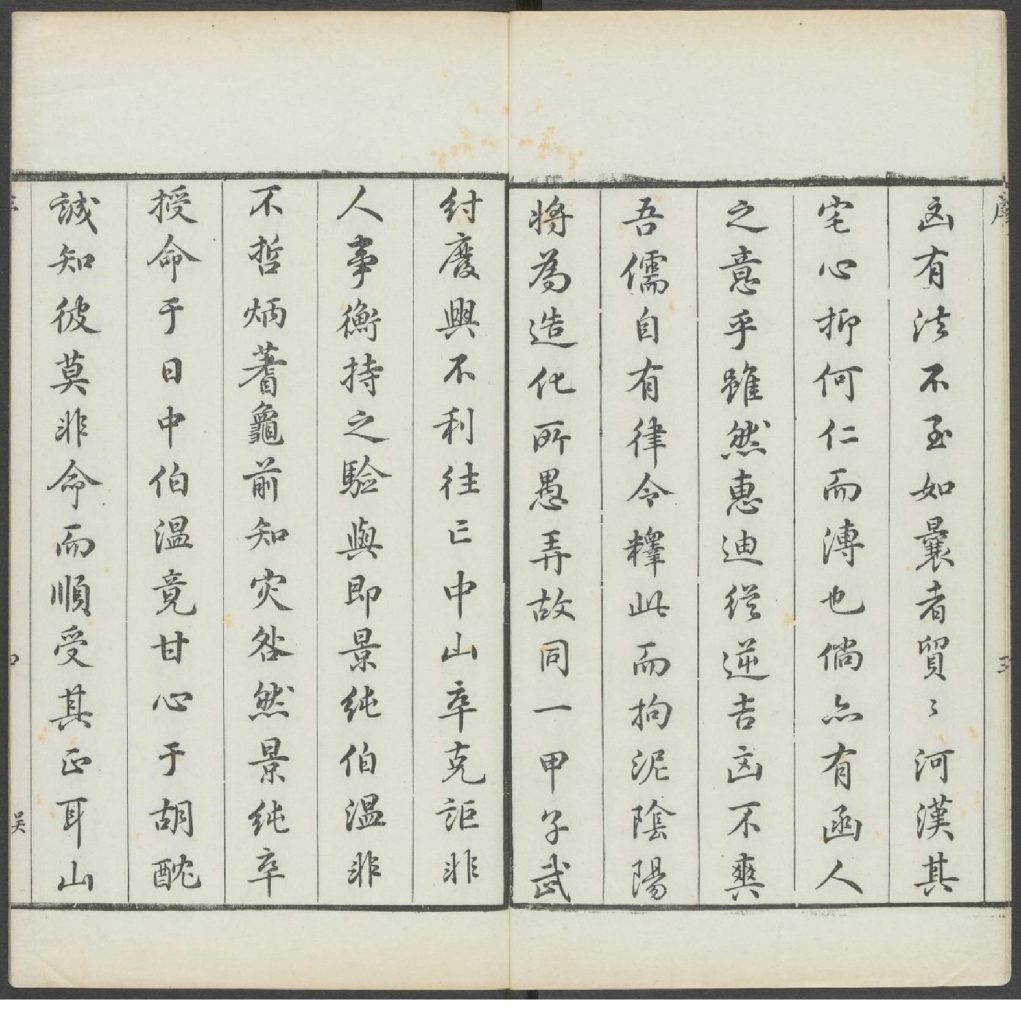 凶有法不至如曩者貿〻河漢其
宅心抑何仁而溥也倘亦有函人
之意乎雖然惠迪從逆吉凶不爽
吾儒自有律令釋此而拘泥陰陽
將為造化所愚弄故同一甲子武
紂廢興不利往亡中山卒克詎非
人事衡持之驗與即景純伯溫非
不哲炳蓍龜前知灾咎然景純卒
授命于日中伯溫竟甘心于胡酖
誠知彼莫非命而順受其正耳山